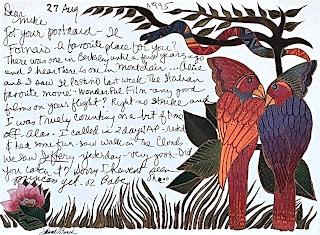 Dear 27 Aug 1995
Mike
Got your postcard - Il
Fornaio - a favorite place for you?
There was one in Berkeley until a few years ago
and I hear there is one in Montclair... Chris
and I saw Il Postino last week. The Italian
favorite movie - wonderful film - any good
films on your flight? Right no strike and
I was truly counting on a bit of time
off. Alas - I called in 2 days AP - asked
& had some fun. Saw Walk in the Clouds
We saw Jeffery yesterday - very good. Did
you catch it? Sorry I haven't seen
Princess yet. or Babe